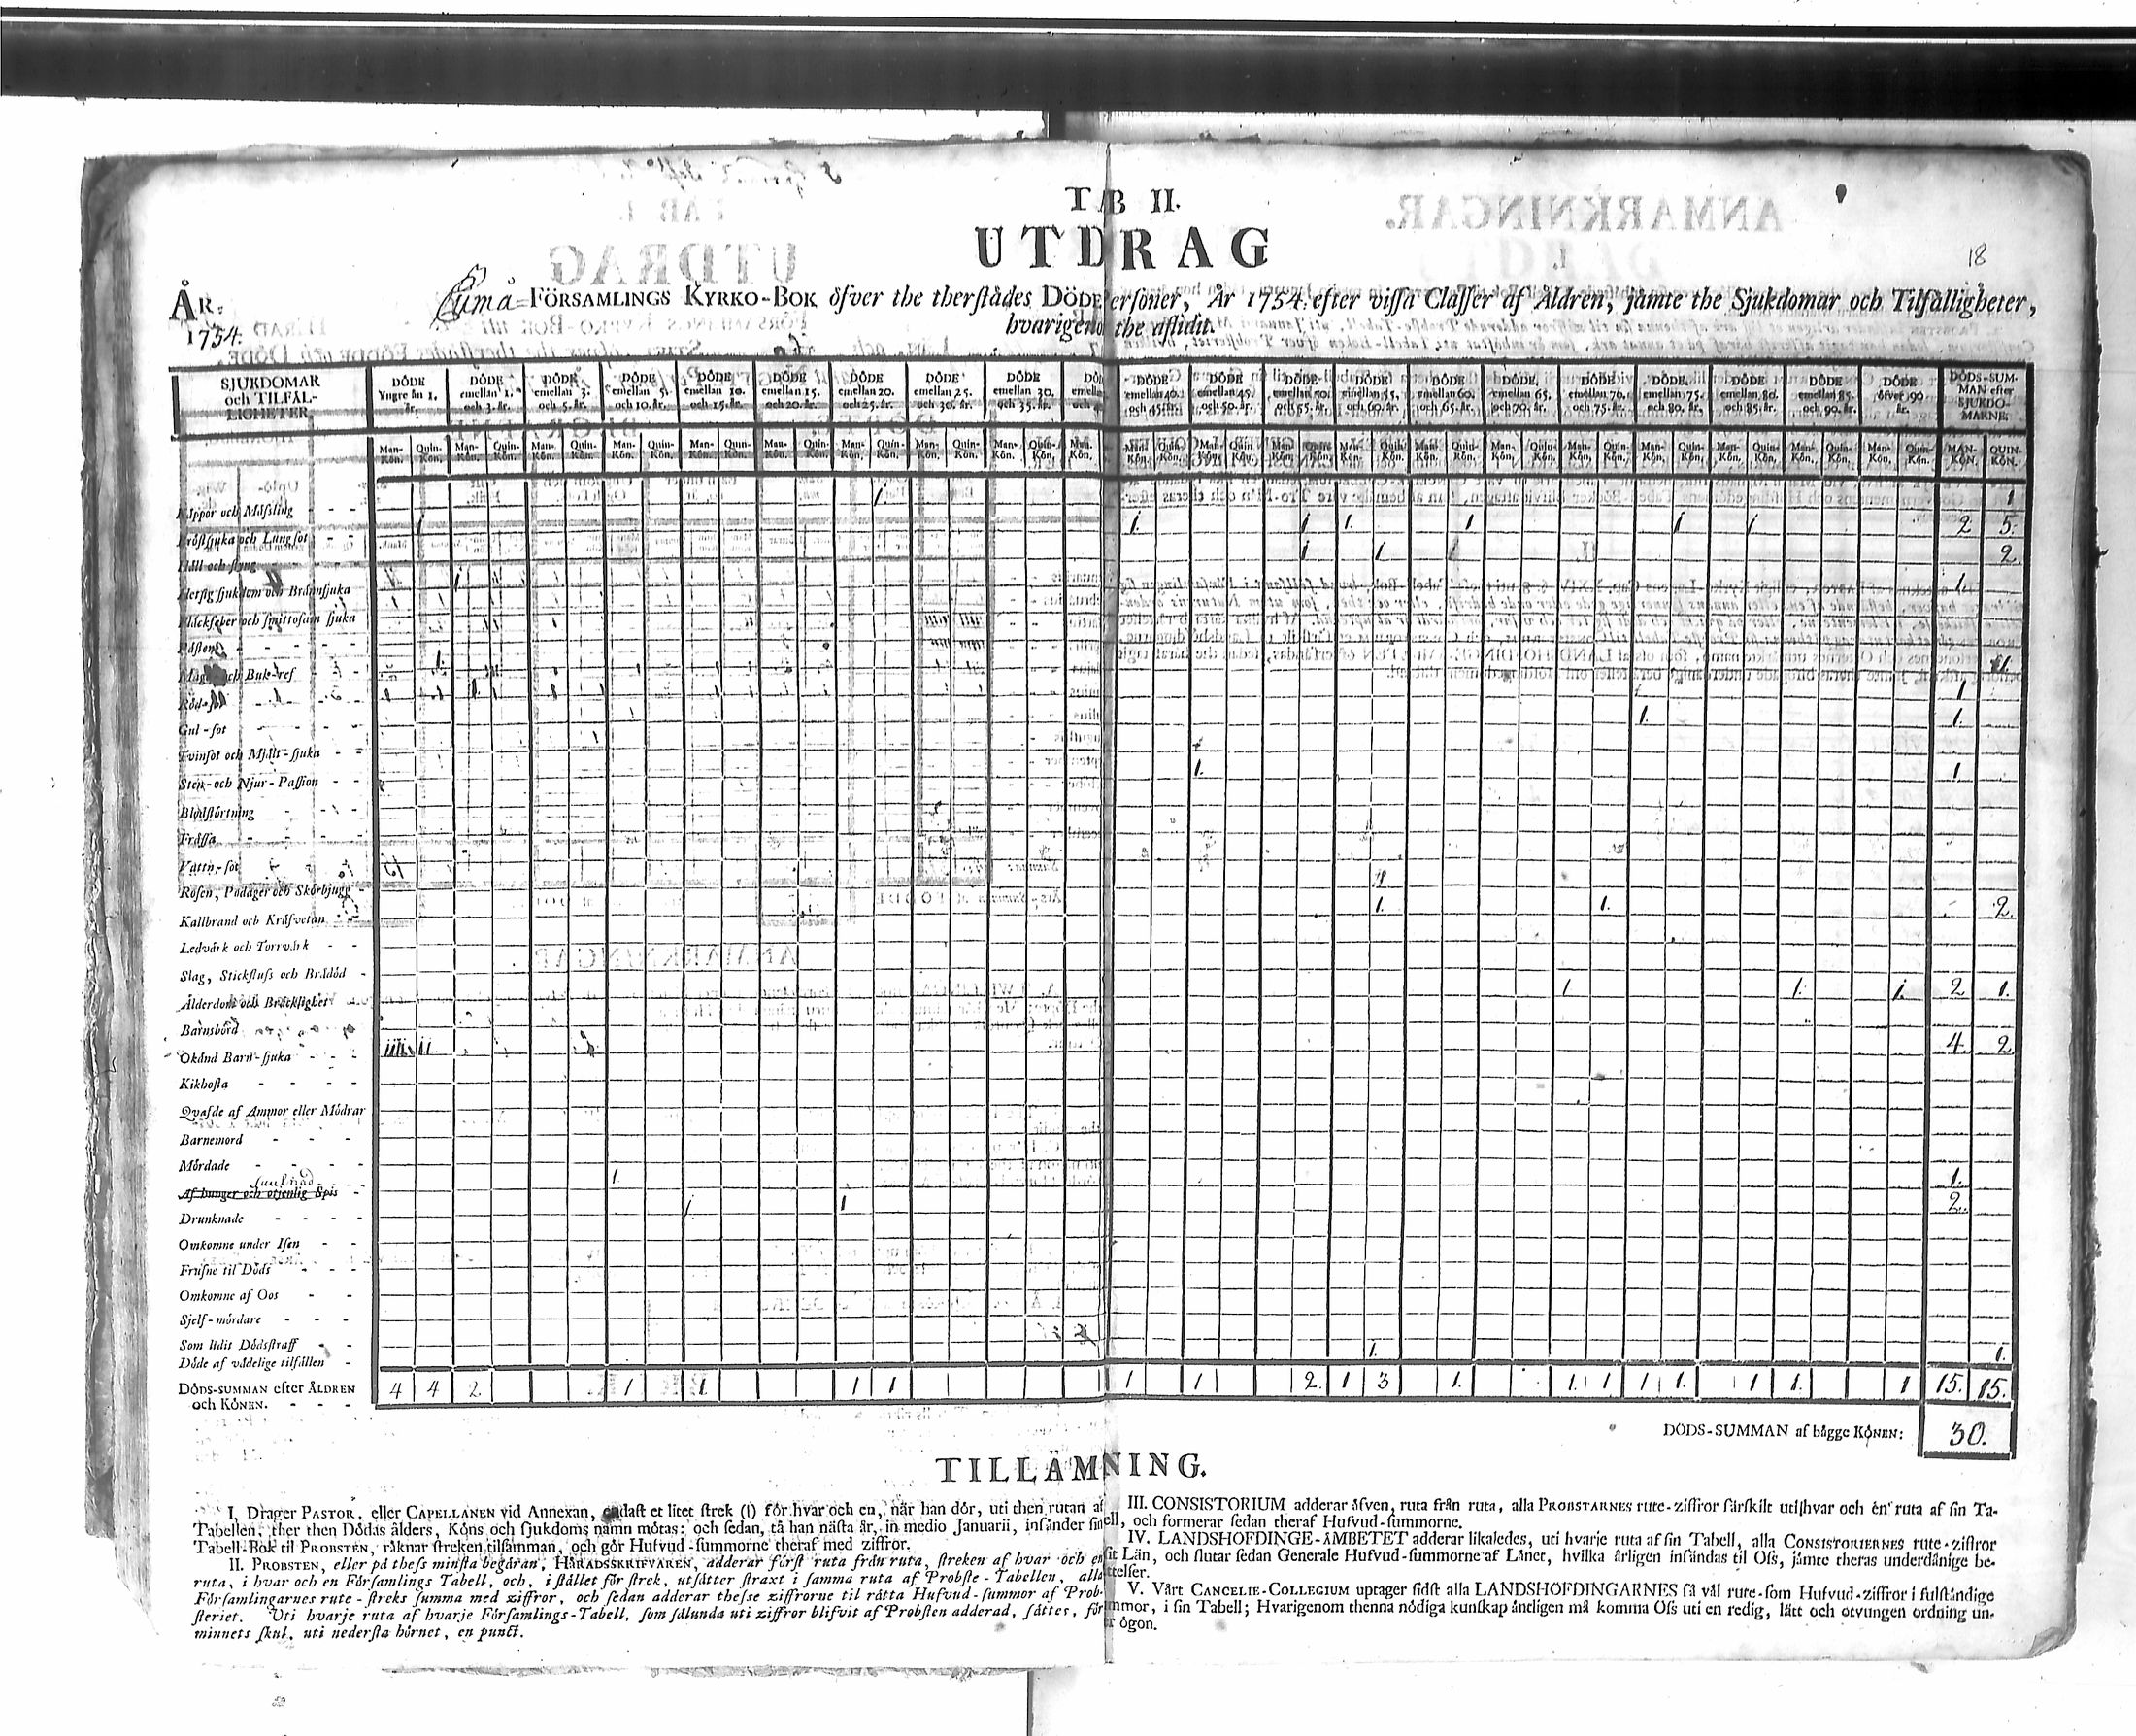 TAB II.
UTDRAG
18
ÅR:
1754.
Lumå-FÖRSAMLINGS KYRKO-BOK öfver the therstädes DÖDE Personer, År 1754. efter vissa Classer af Åldren, jämte the Sjukdomar och Tilfälligheter,
hvarigenom the aflidit.
SJUKDOMAR och TILFÄL-LIGHETER.
DÖDE Yngre än 1. år.
DÖDE emellan 1. och 3. år.
DÖDE emellan 3. och 5. år.
DÖDE emellan 5. och 10. år.
DÖDE emellan 10. och 15. år.
DÖDE emellan 15. och 20. år.
DÖDE emellan 20. och 25. år.
DÖDE emellan 25. och 30. år.
DÖDE emellan 30. och 35. år.
DÖDE emellan 40. och 45. år.
DÖDE emellan 45. och 50. år.
DÖDE emellan 50. och 55. år.
DÖDE emellan 55. och 60. år.
DÖDE emellan 60. och 65. år.
DÖDE emellan 65. och 70. år.
DÖDE emellan 70. och 75. år.
DÖDE emellan 75. och 80. år.
DÖDE emellan 80. och 85. år.
DÖDE emellan 85. och 90. år.
DÖDE öfver 90 år.
DÖDS-SUMMAN efter SJUKDOMARNE.
Man-Kön. Quin-Kön.
MAN-KÖN. QUIN-KÖN.
Koppor och Mässling 1 1
Bröstsjuka och Lungsot 1. 1 1. 1 1 1 2 5.
Håll och styng 1 1 2
Hetsig sjukdom och Brännsjuka 1 1
Fläckfeber och smittosam sjuka
Pästen
Mag- och Buk-ref 1
Röd-sot 1. 1
Gul-sot 1. 1.
Tvinsot och Mjält-sjuka
Sten- och Njur-Passion 1. 1
Blodstörtning
Frässa
Vattn-sot
Rosen, Podager och Skörbjugg
Kallbrand och Kräfvetan 1. 1. 2.
Ledvärk och Torrvärk
Slag, Stickfluss och Brådöd
Ålderdom och Bräcklighet 1 1. 1. 2 1.
Barnsbörd
Okänd Barn-sjuka IIII. II 4. 2
Kikhosta
Qvafde af Ammor eller Mödrar
Barnemord
Mördade
Af hunger och otjenlig Spis 1. 1.
Drunknade 1. 1 2.
Omkomne under Isen
Frusne til Döds
Omkomne af Oos
Sjelf-mördare
Som lidit Dödsstraff
Döde af vådelige tilfällen 1. 1.
DÖDS-SUMMAN efter ÅLDREN och KÖNEN. 4 4 2 1 1. 1 1 1 1 2. 1 3 1. 1. 1 1 1. 1 1. 1 15. 15.
DÖDS-SUMMAN af bägge KÖNEN: 30.
TILLÄMNING.
I. Drager PASTOR, eller CAPELLANEN vid Annexan, endast et litet strek (1) för hvar och en, när han dör, uti then rutan af
Tabellen, ther then Dödas ålders, Köns och sjukdoms namn mötas: och sedan, tå han nästa år, in medio Januarii, insänder sin
Tabell-Bok til PROBSTEN, räknar streken tilsamman, och gör Hufvud-summorne theraf med ziffror.
II. PROBSTEN, eller på thess minsta begäran, HÄRADSSKRIFVAREN, adderar först ruta från ruta, streken af hvar och en
ruta, i hvar och en Församlings Tabell, och, i stället för strek, utsätter straxt i samma ruta af Probste-Tabellen, alla
Församlingarnes rute-streks summa med ziffror, och sedan adderar thesse ziffrorne til rätta Hufvud-summor af Prob-
steriet. Uti hvarje ruta af hvarje Församlings-Tabell, som sålunda uti ziffror blifvit af Probsten adderad, sättes, för
minnets skul, uti nedersta hörnet, en punct.
III. CONSISTORIUM adderar äfven, ruta från ruta, alla PROBSTARNES rute-ziffror särskilt uti hvar och en ruta af sin Ta-
bell, och formerar sedan theraf Hufvud-summorne.
IV. LANDSHÖFDINGE-ÄMBETET adderar likaledes, uti hvarje ruta af sin Tabell, alla CONSISTORIERNES rute-ziffror
sit Län, och slutar sedan Generale Hufvud-summorne af Länet, hvilka årligen insändas til Oss, jämte theras underdånige be-
rättelser.
V. Vårt CANCELIE-COLLEGIUM uptager sidst alla LANDSHÖFDINGARNES så väl rute-som Hufvud-ziffror i fulständige
summor, i sin Tabell; Hvarigenom thenna nödiga kunskap äntligen må komma Oss uti en redig, lätt och otvungen ordning un-
der ögon.